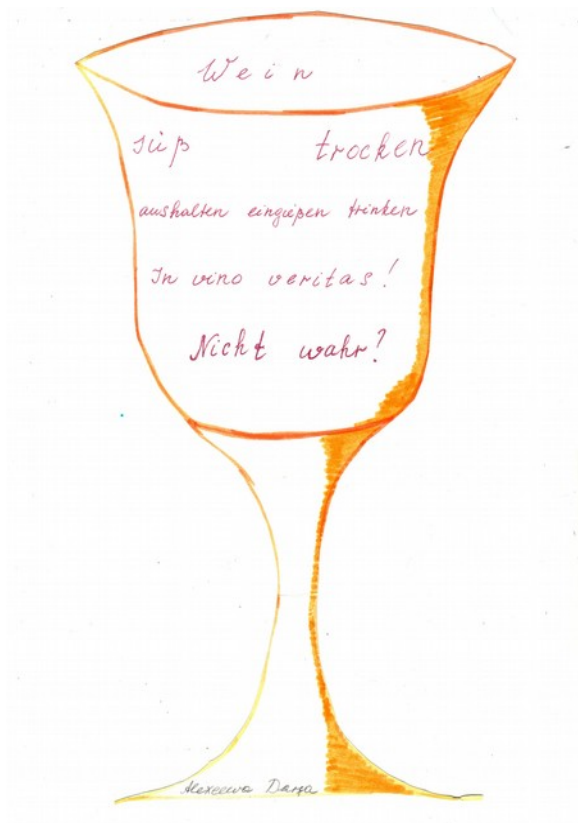 Wein
süß trocken
aushalten eingießen trinken
In vino veritas!
Nicht wahr?
Alexeewa Darja